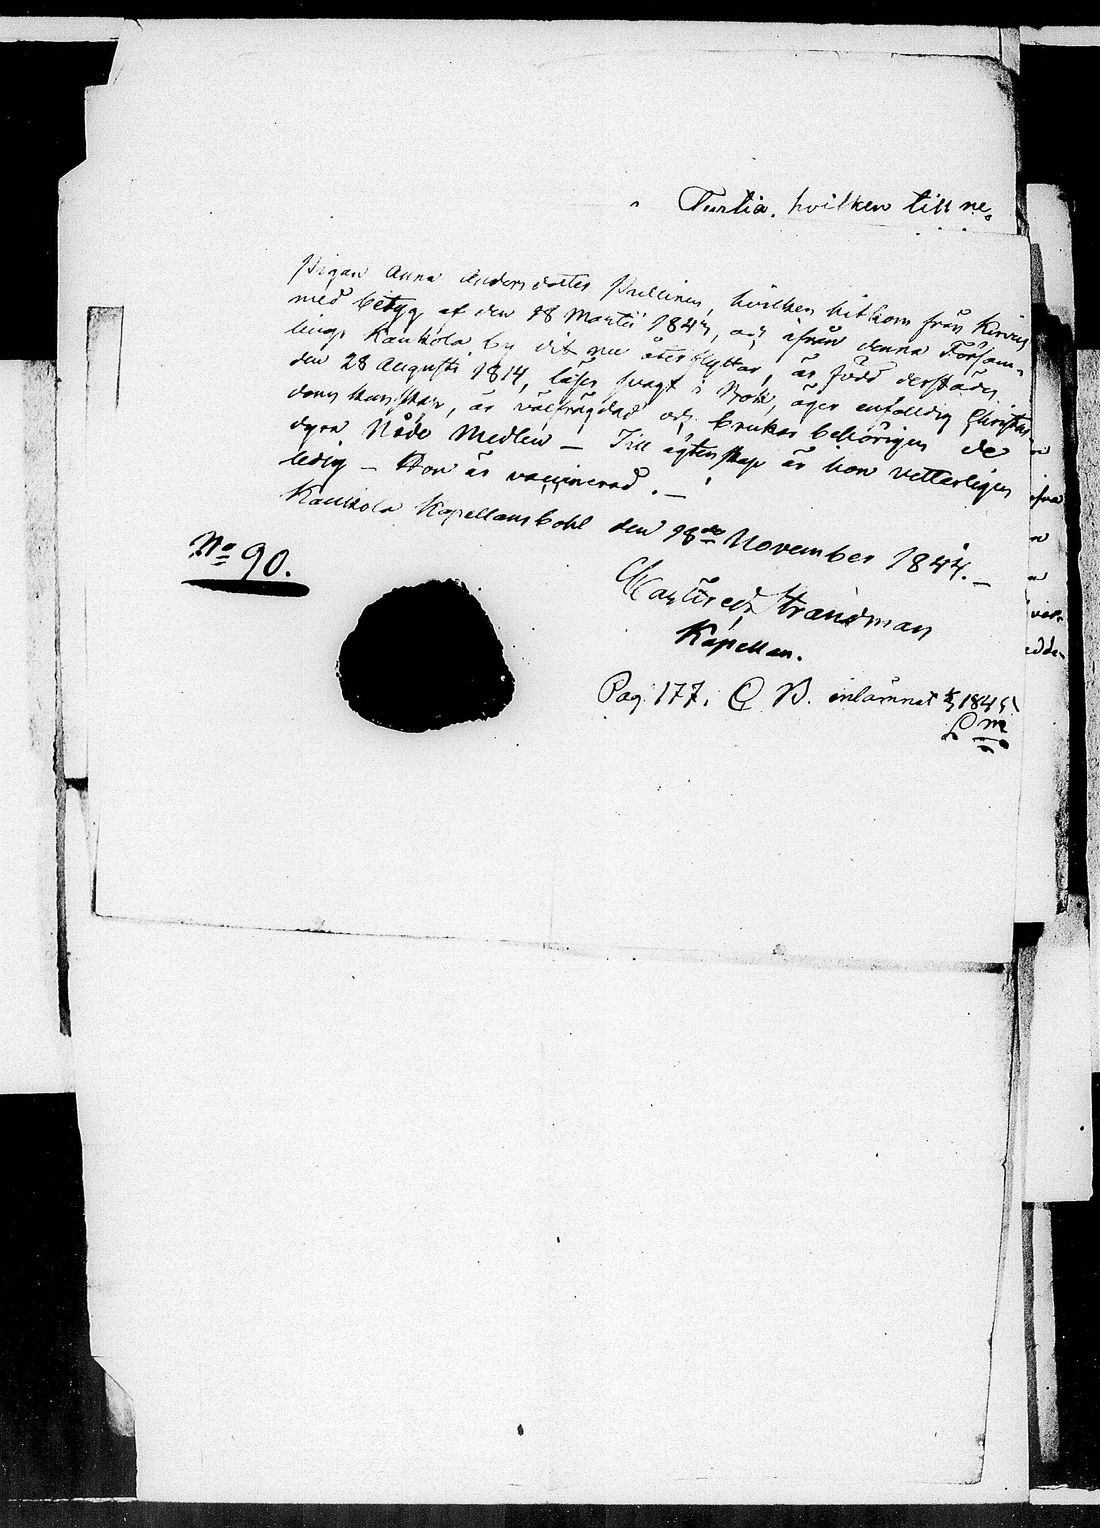 Turtia. hvilken till ne-
Pigan Anna Andersdotter Pullinen, hvilken hitkom från Kirvus
med betyg af den 18 Martii 1844, och ifrån denna Försam-
lings Kankola by dit nu återflyttar, är född derstädes
den 28 Augusti 1814, läser svagt i Bok, äger enfaldig Christen-
doms kunskap, är välfrägdad och brukar behörigen de
dyra Nåde Medlen — Till ägtenskap är hon vetterligen
ledig — Hon är vaccinerad. —
Kaukola Kapellansbohl den 18de November 1844. —
No 90.
Strandman
Kapellan.
Pag. 177. C. B. inlämnat 1845
L m